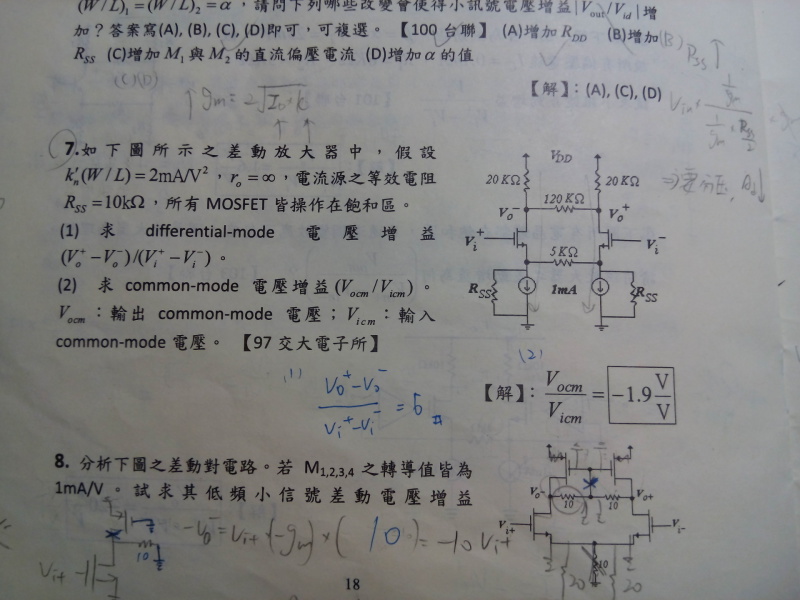 (W/L)₁=(W/L)₂=α，請問下列哪些改變會使得小訊號電壓增益|V_out/V_id|增
加？答案寫(A), (B), (C), (D)即可，可複選。【100 台聯】 (A)增加 R_DD (B)增加
R_SS (C)增加 M₁ 與 M₂ 的直流偏壓電流 (D)增加 α 的值
(C)(D)
【解】: (A), (C), (D)
(B) R_SS ↑
7.如下圖所示之差動放大器中，假設
k'_n(W/L)=2mA/V²，r_o=∞，電流源之等效電阻
R_SS=10kΩ，所有 MOSFET 皆操作在飽和區。
(1) 求 differential-mode 電壓增益
(V_o⁺−V_o⁻)/(V_i⁺−V_i⁻)。
(2) 求 common-mode 電壓增益(V_ocm/V_icm)。
V_ocm：輸出 common-mode 電壓；V_icm：輸入
common-mode 電壓。【97 交大電子所】
V_DD
20 KΩ
20 KΩ
120 KΩ
V_o⁻
V_o⁺
V_i⁺
V_i⁻
5 KΩ
R_SS
1mA
R_SS
(1)
(V_o⁺−V_o⁻)/(V_i⁺−V_i⁻) = 6
(2)
【解】: V_ocm/V_icm = −1.9 V/V
8. 分析下圖之差動對電路。若 M₁,₂,₃,₄ 之轉導值皆為
1mA/V。試求其低頻小信號差動電壓增益
Vo-
Vo+
10
10
Vi+
Vi-
10
20
20
10
Vi+
−V_o⁻ = V_i+ (−g_m) × ( 10 ) = −10 V_i+
18